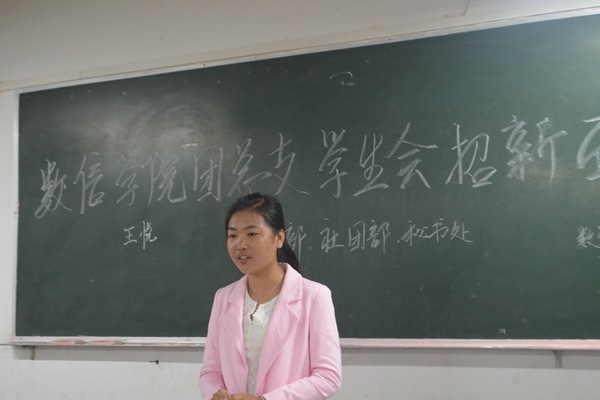 数信学院团总支学生会招新
王悦 部.社团部.秘书处 数